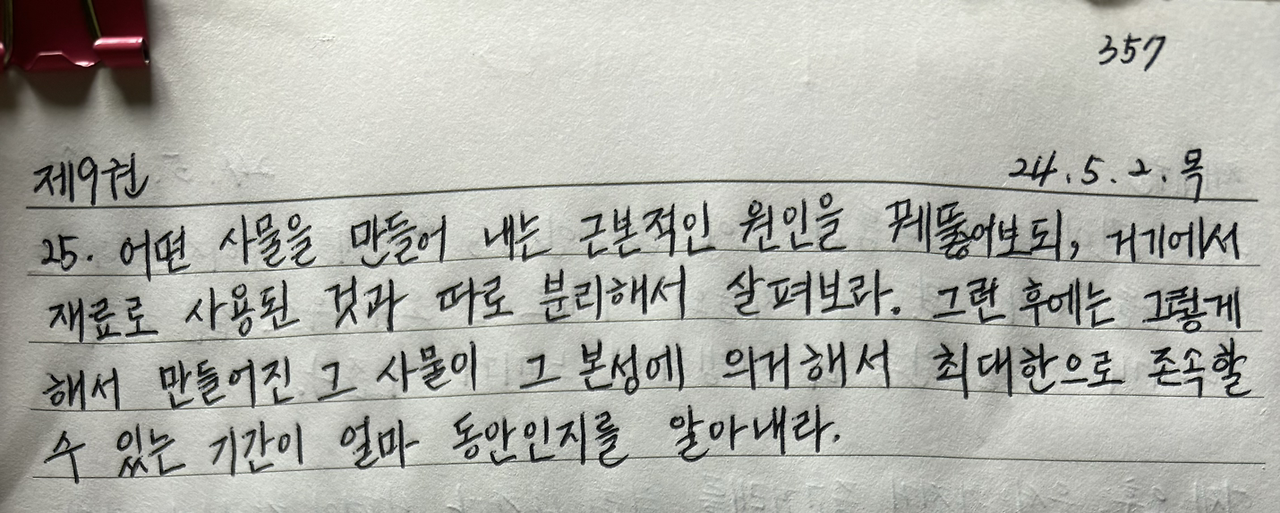 357
제9권 24.5.2.목
25. 어떤 사물을 만들어 내는 근본적인 원인을 꿰뚫어보되, 거기에서
재료로 사용된 것과 따로 분리해서 살펴보라. 그런 후에는 그렇게
해서 만들어진 그 사물이 그 본성에 의거해서 최대한으로 존속할
수 있는 기간이 얼마 동안인지를 알아내라.